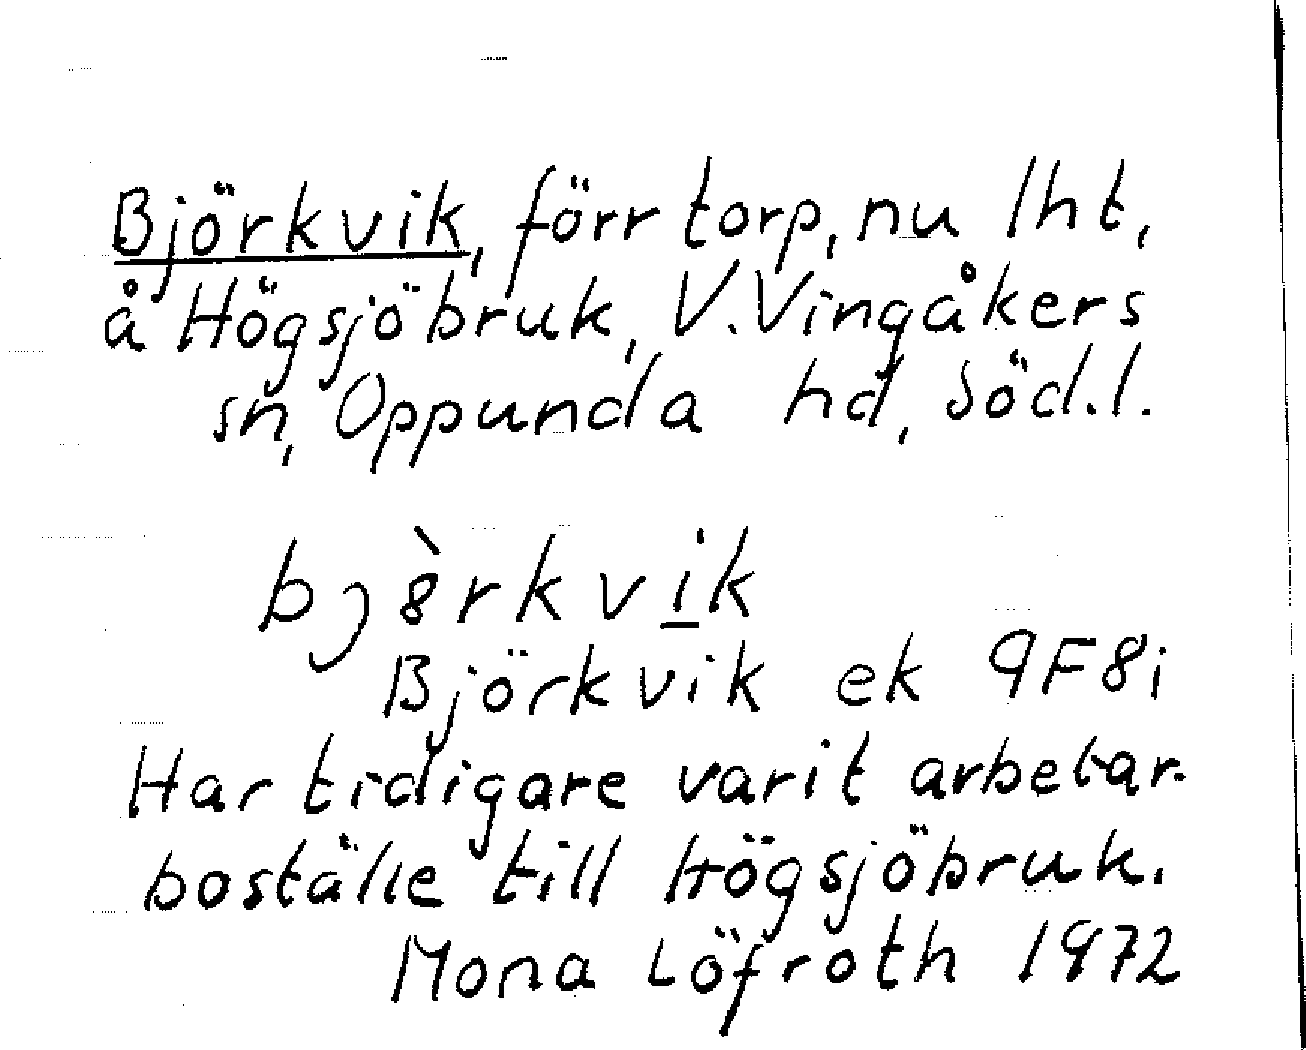 Björkvik, förr torp, nu lht,
å Högsjöbruk, V. Vingåkers
sn, Oppunda hd, Söd.l.
bjèrkvik
Björkvik ek 9F8i
Har tidigare varit arbetar-
boställe till Högsjöbruk.
Mona Löfroth 1972